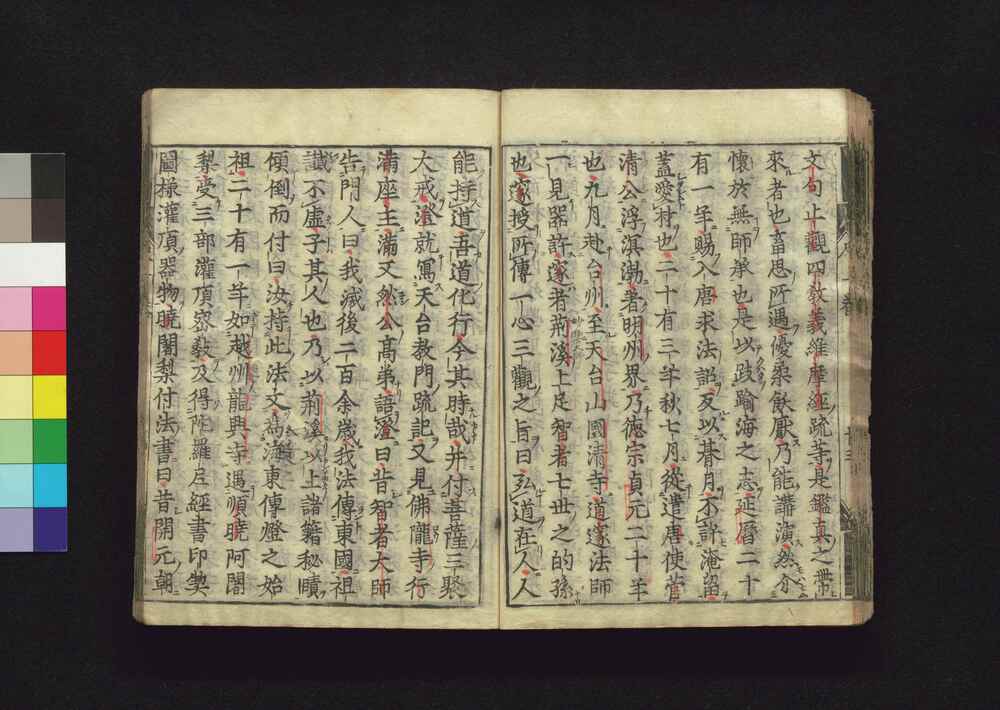 文句止觀四教義維摩經疏等是鑑真之帶
來者也畜思所遇優柔飫厭乃能講演然介
懷於無師承也是以跂踰海之志延曆二十
有一年賜入唐求法詔友以朞月不許淹留
蓋愛材也二十有三年秋七月從遣唐使菅
清公浮溟渤著明州界乃德宗貞元二十年
也九月赴台州至天台山國清寺道邃法師
一見器許邃者荊溪上足智者七世之的孫
也邃授所傳一心三觀之旨曰弘道在人人
能持道吾道化行今其時哉并付菩薩三聚
大戒澄就寫天台教門疏記又見佛隴寺行
滿座主滿又然公高弟語澄曰昔智者大師
告門人曰我滅後二百余歲我法傳東國祖
讖不虛子其人也乃以荊溪以上諸籍秘賾
傾倒而付曰汝持此法文為海東傳燈之始
祖二十有一年如越州龍興寺遇順曉阿闍
梨受三部灌頂密教及得陀羅尼經書印契
圖樣灌頂器物曉闍梨付法書曰昔開元朝